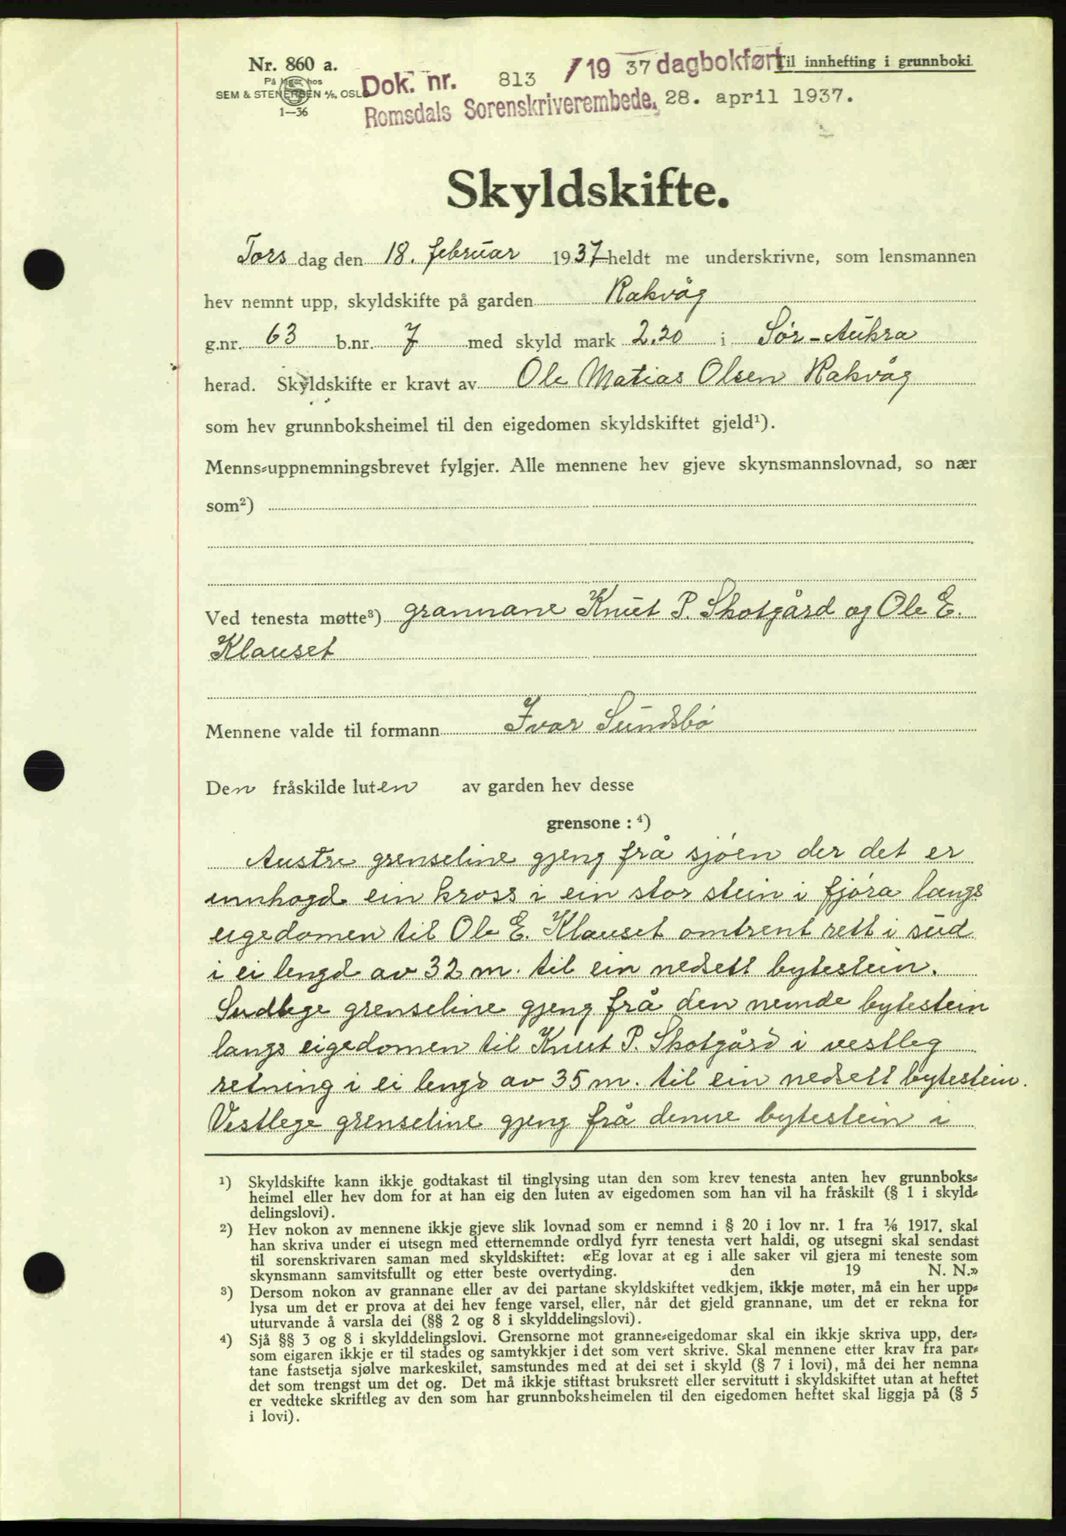 Nr. 860 a.
På lager hos
SEM & STENERSEN A/S, OSLO
1—36
Dok. nr. 813 / 19 37 dagbokført
Til innhefting i grunnboki
Romsdals Sorenskriverembede, 28. april 1937.
Skyldskifte.
Tors dag den 18. februar 1937 heldt me underskrivne, som lensmannen
hev nemnt upp, skyldskifte på garden Rakvåg
g.nr. 63 b.nr. 7 med skyld mark 2.20 i Sør-Aukra
herad. Skyldskifte er kravt av Ole Matias Olsen Rakvåg
som hev grunnboksheimel til den eigedomen skyldskiftet gjeld¹).
Menns-uppnemningsbrevet fylgjer. Alle mennene hev gjeve skynsmannslovnad, so nær
som²)
Ved tenesta møtte³) grannane Knut P. Skotgård og Ole E.
Klauset
Mennene valde til formann Ivar Sundsbø
Den fråskilde luten av garden hev desse
grensone : ⁴)
Austre grenseline gjeng frå sjøen der det er
innhogd ein kross i ein stor stein i fjøra langs
eigedomen til Ole E. Klauset omtrent rett i sud
i ei lengd av 32 m. til ein nedsett bytestein.
Sudlege grenseline gjeng frå den nemde bytestein
langs eigedomen til Knut P. Skotgård i vestleg
retning i ei lengd av 35 m. til ein nedsett bytestein.
Vestlege grenseline gjeng frå denne bytestein i
¹) Skyldskifte kann ikkje godtakast til tinglysing utan den som krev tenesta anten hev grunnboks-
heimel eller hev dom for at han eig den luten av eigedomen som han vil ha fråskilt (§ 1 i skyld-
delingslovi).
²) Hev nokon av mennene ikkje gjeve slik lovnad som er nemnd i § 20 i lov nr. 1 fra ¹⁄₆ 1917, skal
han skriva under ei utsegn med etternemnde ordlyd fyrr tenesta vert haldi, og utsegni skal sendast
til sorenskrivaren saman med skyldskiftet: «Eg lovar at eg i alle saker vil gjera mi teneste som
skynsmann samvitsfullt og etter beste overtyding. den 19 N. N.»
³) Dersom nokon av grannane eller av dei partane skyldskiftet vedkjem, ikkje møter, må ein her upp-
lysa um det er prova at dei hev fenge varsel, eller, når det gjeld grannane, um det er rekna for
uturvande å varsla dei (§§ 2 og 8 i skylddelingslovi).
⁴) Sjå §§ 3 og 8 i skylddelingslovi. Grensorne mot granne-eigedomar skal ein ikkje skriva upp, der-
som eigaren ikkje er til stades og samtykkjer i det som vert skrive. Skal mennene etter krav fra par-
tane fastsetja sjølve markeskilet, samstundes med at dei set i skyld (§ 7 i lovi), må dei her nemna
det som trengst um det og. Det må ikkje stiftast bruksrett eller servitutt i skyldskiftet utan at heftet
er vedteke skriftleg av den som har grunnboksheimelen til den eigedomen heftet skal liggja på (§ 5
i lovi).